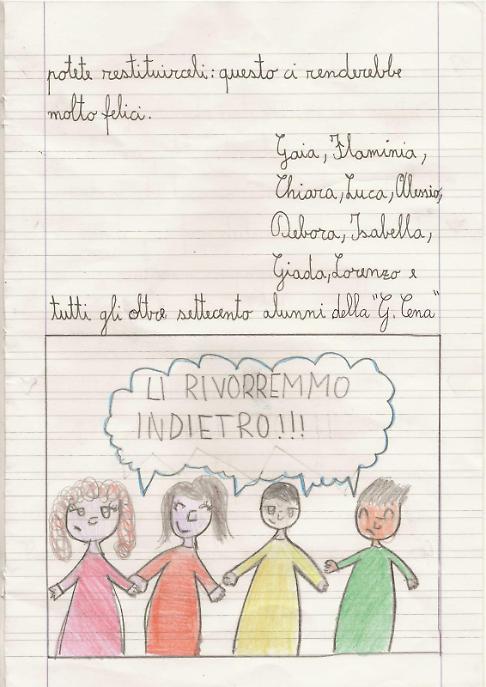 potete restituirceli: questo ci renderebbe
molto felici.
Gaia, Flaminia,
Chiara, Luca, Alessio,
Debora, Isabella,
Giada, Lorenzo e
tutti gli oltre settecento alunni della "G. Cena"
LI RIVORREMMO
INDIETRO!!!